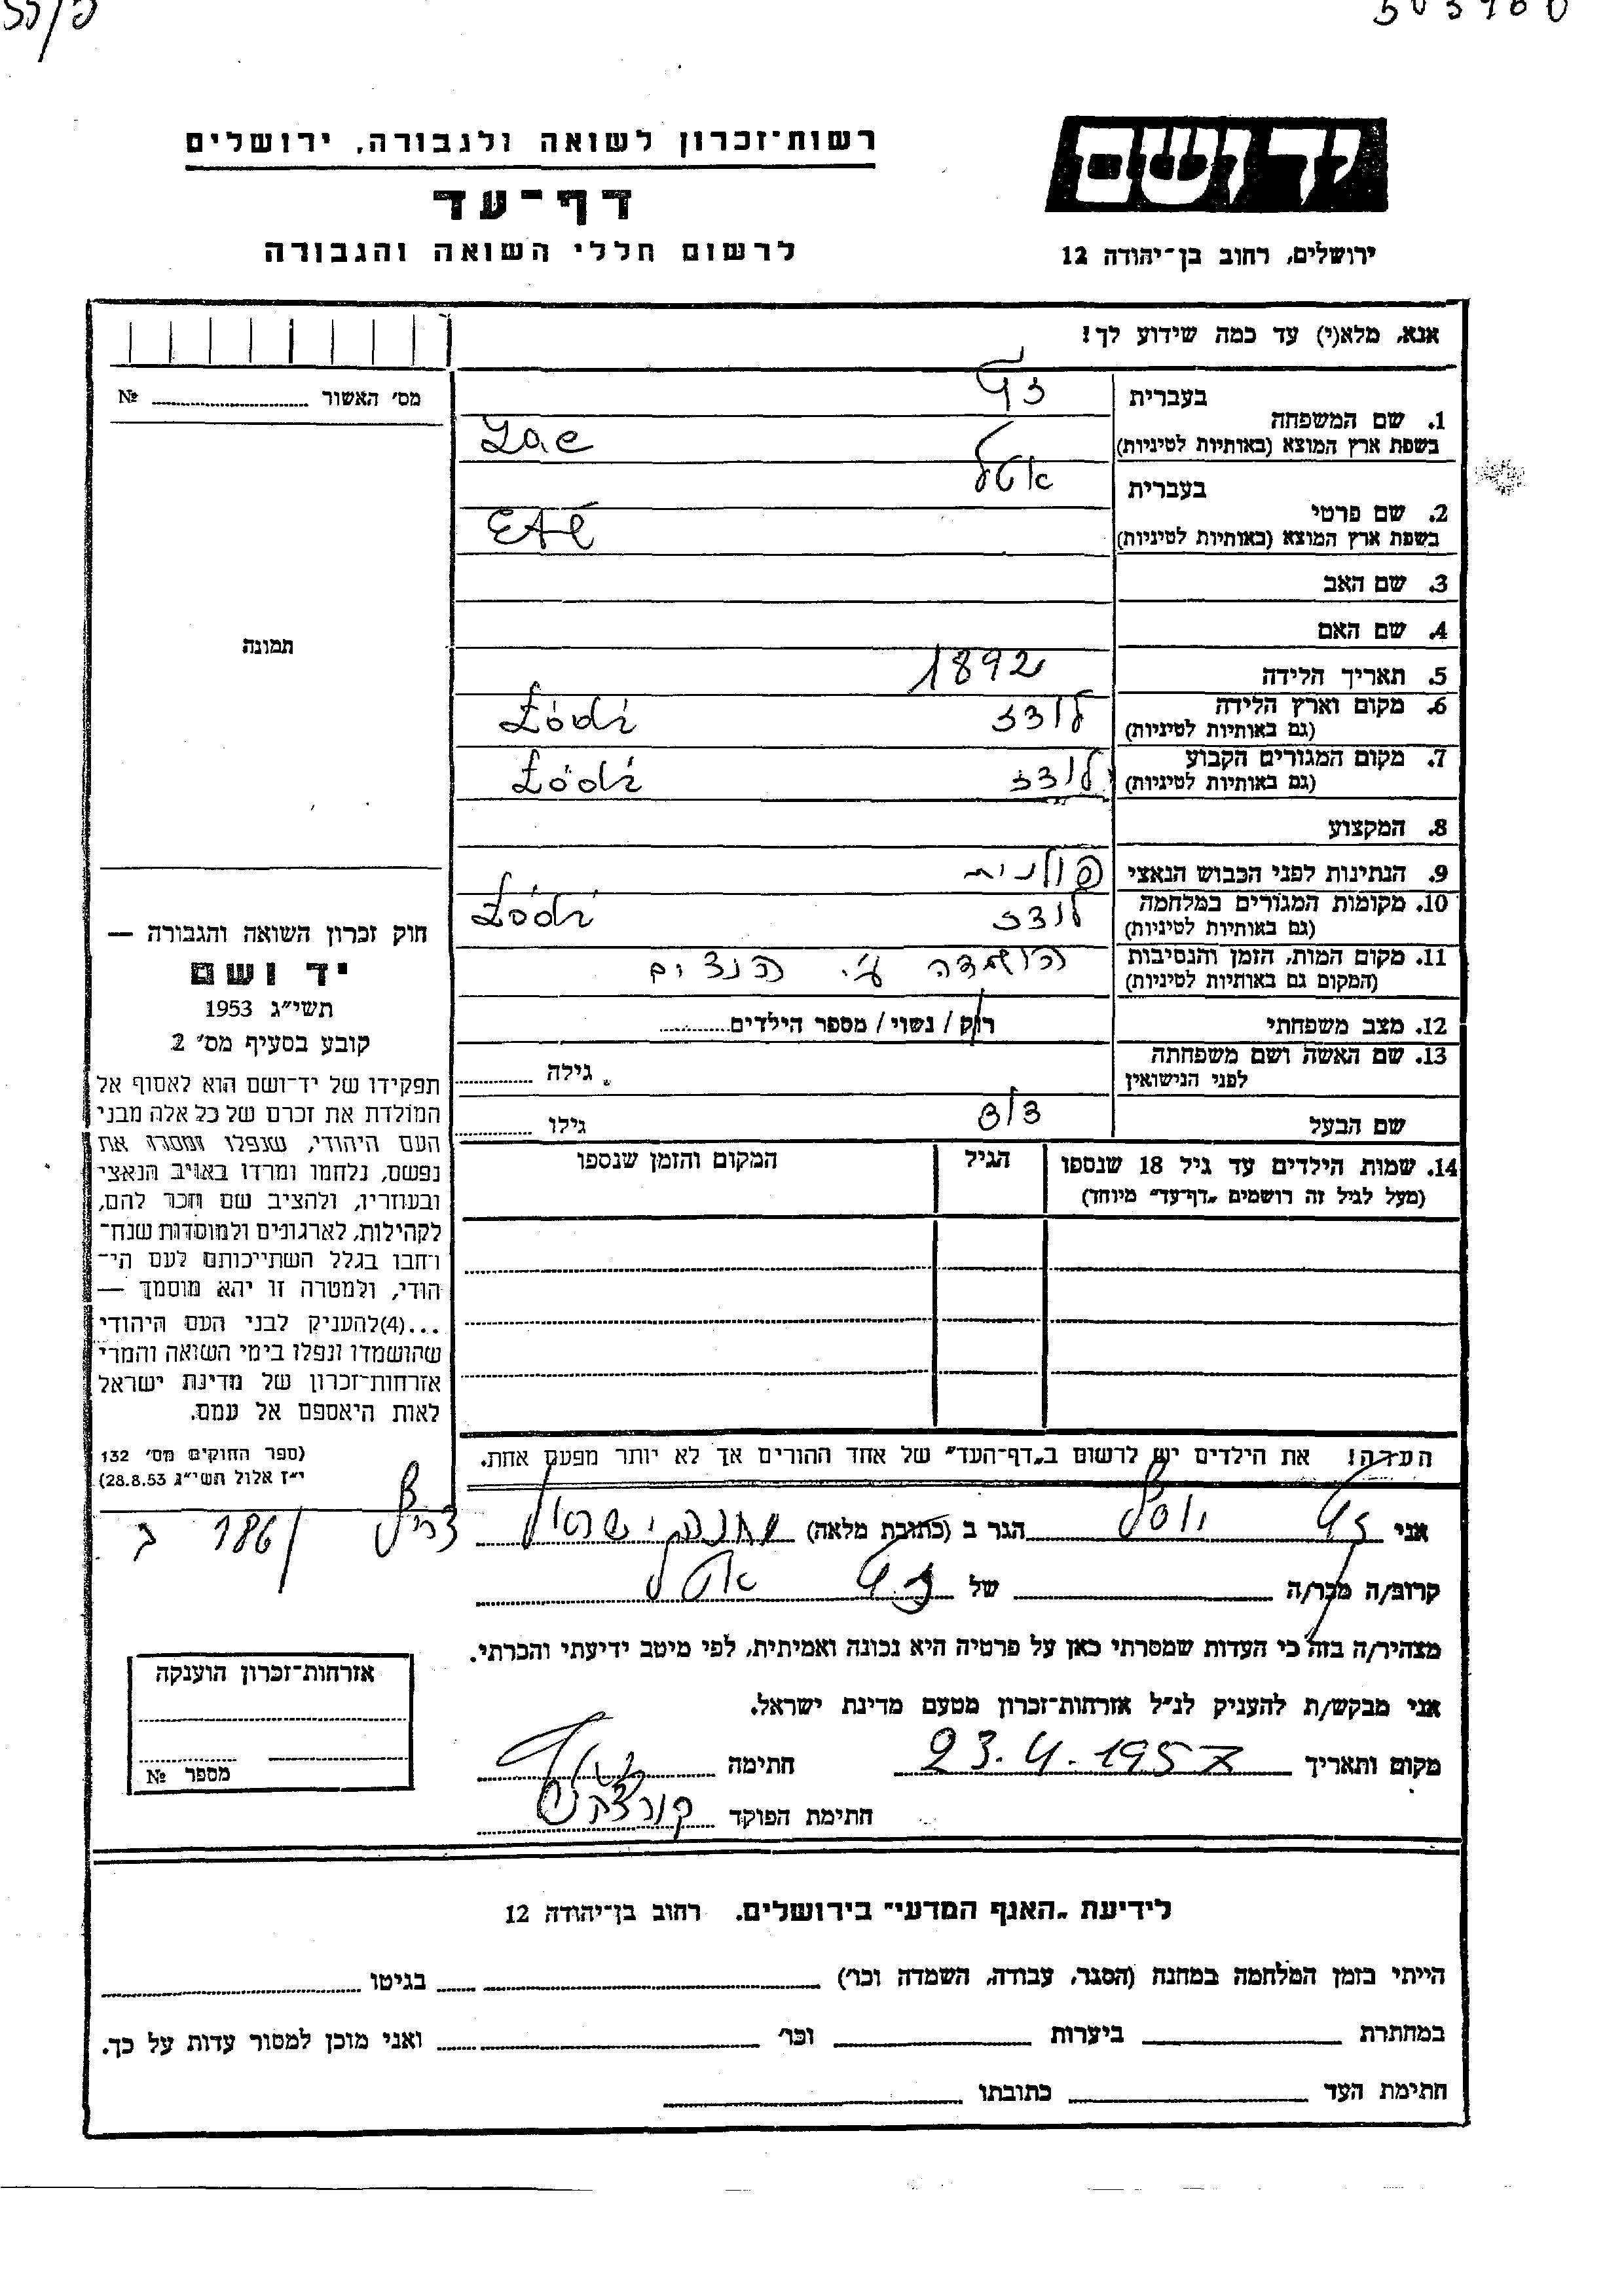 רשות־זכרון לשואה ולגבורה, ירושלים
דף־עד
לרשום חללי השואה והגבורה
יד ושם
ירושלים, רחוב בן־יהודה 12
אנא, מלא(י) עד כמה שידוע לך!
מס׳ האשור № 
תמונה
חוק זכרון השואה והגבורה —
יד ושם
תשי״ג 1953
קובע בסעיף מס׳ 2
תפקידו של יד־ושם הוא לאסוף אל
המולדת את זכרם של כל אלה מבני
העם היהודי, שנפלו ומסרו את
נפשם, נלחמו ומרדו באויב הנאצי
ובעוזריו, ולהציב שם וזכר להם,
לקהילות, לארגונים ולמוסדות שנח־
רחבו בגלל השתייכותם לעם הי־
הודי, ולמטרה זו יהא מוסמך —
...(4)להעניק לבני העם היהודי
שהושמדו ונפלו בימי השואה והמרי
אזרחות־זכרון של מדינת ישראל
לאות היאספם אל עמם.
(ספר החוקים מס׳ 132
י״ז אלול תשי״ג 28.8.53)
בעברית
1. שם המשפחה
בשפת ארץ המוצא (באותיות לטיניות)
בעברית אטל
2. שם פרטי
בשפת ארץ המוצא (באותיות לטיניות)
3. שם האב
4. שם האם
5. תאריך הלידה 1892
6. מקום וארץ הלידה לודז Łódź
(גם באותיות לטיניות)
7. מקום המגורים הקבוע לודז Łódź
(גם באותיות לטיניות)
8. המקצוע
9. הנתינות לפני הכבוש הנאצי פולנית
10. מקומות המגורים במלחמה לודז Łódź
(גם באותיות לטיניות)
11. מקום המות, הזמן והנסיבות הושמדה ע״י הנצים
(המקום גם באותיות לטיניות)
12. מצב משפחתי רוק / נשוי / מספר הילדים
13. שם האשה ושם משפחתה
לפני הנישואין גילה
שם הבעל גילו
14. שמות הילדים עד גיל 18 שנספו הגיל המקום והזמן שנספו
(מעל לגיל זה רושמים „דף־עד״ מיוחד)
הערה! את הילדים יש לרשום ב„דף־העד״ של אחד ההורים אך לא יותר מפעם אחת.
אני יוסף הגר ב (כתובת מלאה) מחנה ישראל 186
קרוב/ה מכר/ה של אטל
מצהיר/ה בזה כי העדות שמסרתי כאן על פרטיה היא נכונה ואמיתית, לפי מיטב ידיעתי והכרתי.
אני מבקש/ת להעניק לנ״ל אזרחות־זכרון מטעם מדינת ישראל.
מקום ותאריך 23.4.1957 חתימה
חתימת הפוקד
אזרחות־זכרון הוענקה
מספר №
לידיעת „האגף המדעי״ בירושלים. רחוב בן־יהודה 12
הייתי בזמן המלחמה במחנה (הסגר, עבודה, השמדה וכו׳) בגיטו
במחתרת ביערות וכו׳ ואני מוכן למסור עדות על כך.
חתימת העד כתובתו